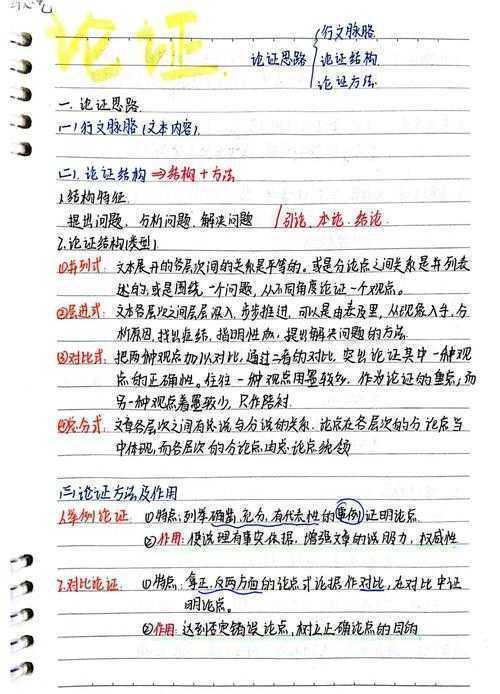 论证
论证思路
行文脉络
论证结构
论证方法
一. 论证思路
(一)行文脉胳(文本内容).
(二). 论证结构⇒结构+方法
1.结构特征
提出问题、分析问题、解决问题 / 引论、本论、结论
2.论证结构(类型)
①并列式: 文本展开的各层次间的关系是平等的。或是分论点之间关系是并列表
述的;或是围绕一个问题,从不同角度论证一个观点。
②层进式: 文本各层次之间层层深入,步步推进,可以是由表及里,从现象入手,分
析原因,找出症结,指明性质,提出解决问题的方法.
③对比式: 把两种观点加以对比,通过二者的对比,突出论证其中一种观
点的正确性。往往一种观点用墨较多,作为论证的重点;而
另一种观点着墨较少,只作陪衬.
④总分式: 文章各层次之间有总说与分说的关系.论点在各层次的分论点当
中体现,而各层次的分论点由总论点统领
(三)论证方法及作用
1.举例论证. ①特点:列举确凿、充分,有代表性的事例证明论点.
②作用: 使说理有事实依据,增强文章的说服力,权威性
2.对比论证. ①特点:拿正、反两方面的论点或论据作对比,在对比中证
明论点。
②作用:达到否定错误论点,树立正确论点的目的